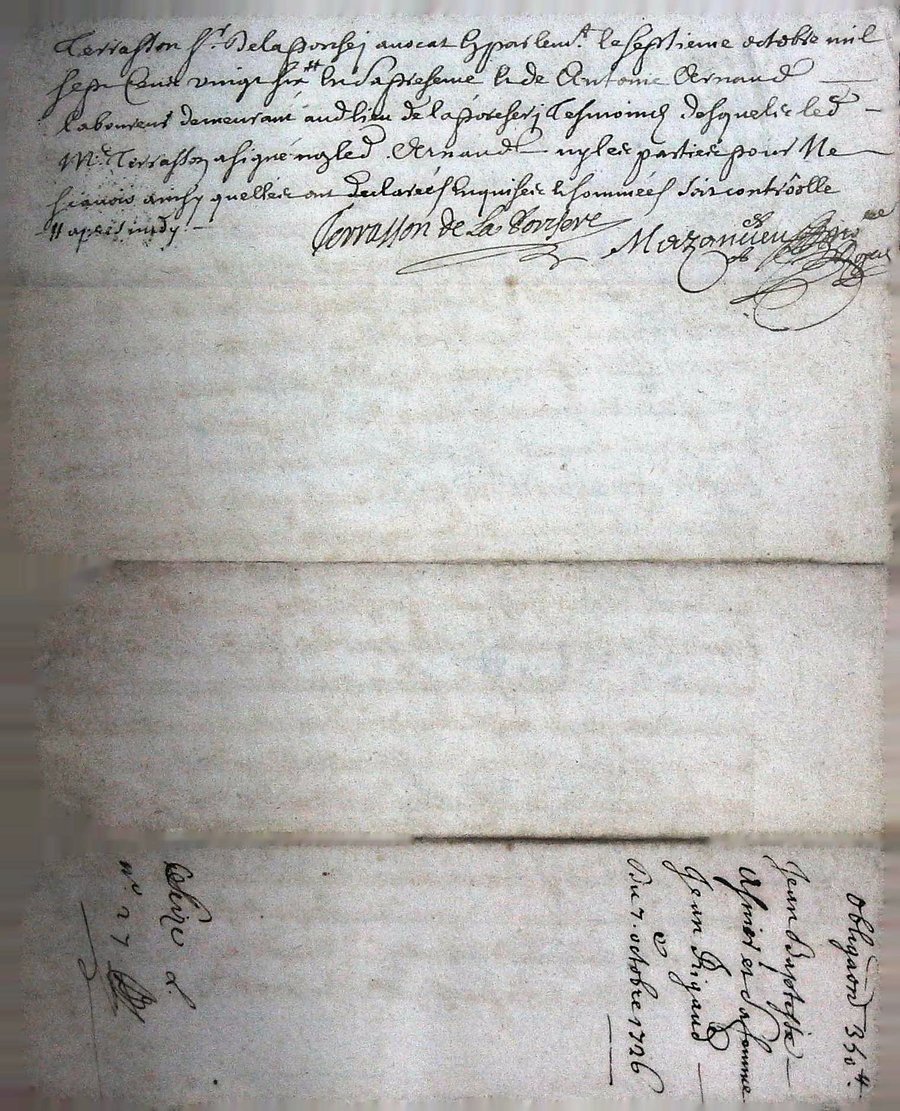 Terrasson Sr. de la porcherj avocat en parlemt. le septieme octobre mil
sept cens vingt six # en sa presence et de Antoine Arnaud
laboureur demeurant audlieu de la porcherj tesmoins desquels led
Mr. Terrasson a signé non led. Arnaud ny les parties pour ne
sçavoir ainsy quelles ont declarées enquises et sommées soit controolle
# apres midy
Terrasson de La
Mazaudieu
obligaon 360#.
Jean Baptiste
et sa femme
Jean Rigaud
Du 7. octobre 1726
L.
no 27